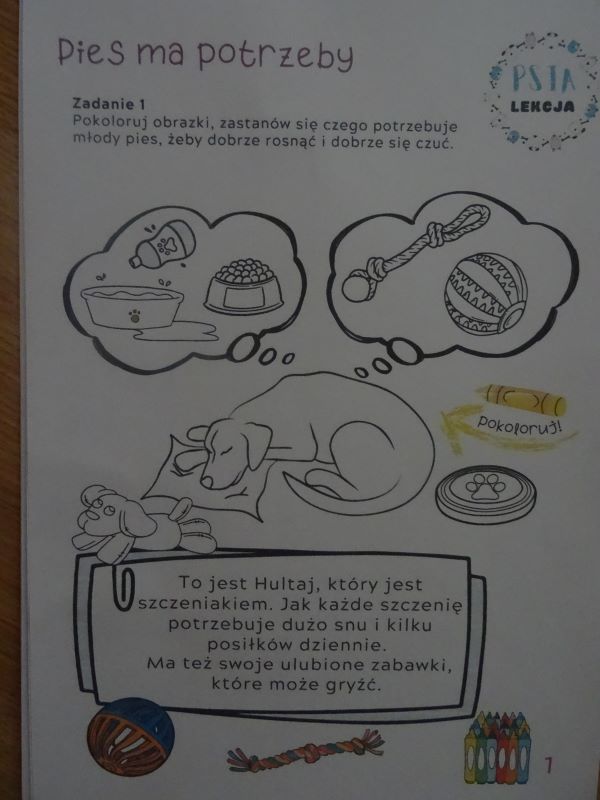 Pies ma potrzeby
PSIA
LEKCJA
Zadanie 1
Pokoloruj obrazki, zastanów się czego potrzebuje
młody pies, żeby dobrze rosnąć i dobrze się czuć.
pokoloruj!
To jest Hultaj, który jest
szczeniakiem. Jak każde szczenię
potrzebuje dużo snu i kilku
posiłków dziennie.
Ma też swoje ulubione zabawki,
które może gryźć.
7